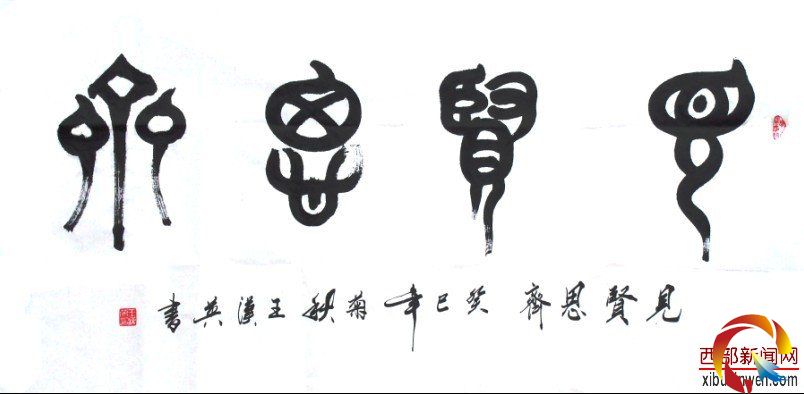 見賢思齊
見賢思齊 癸巳年菊秋王漢英書
西部新闻网
xibuxinwen.com